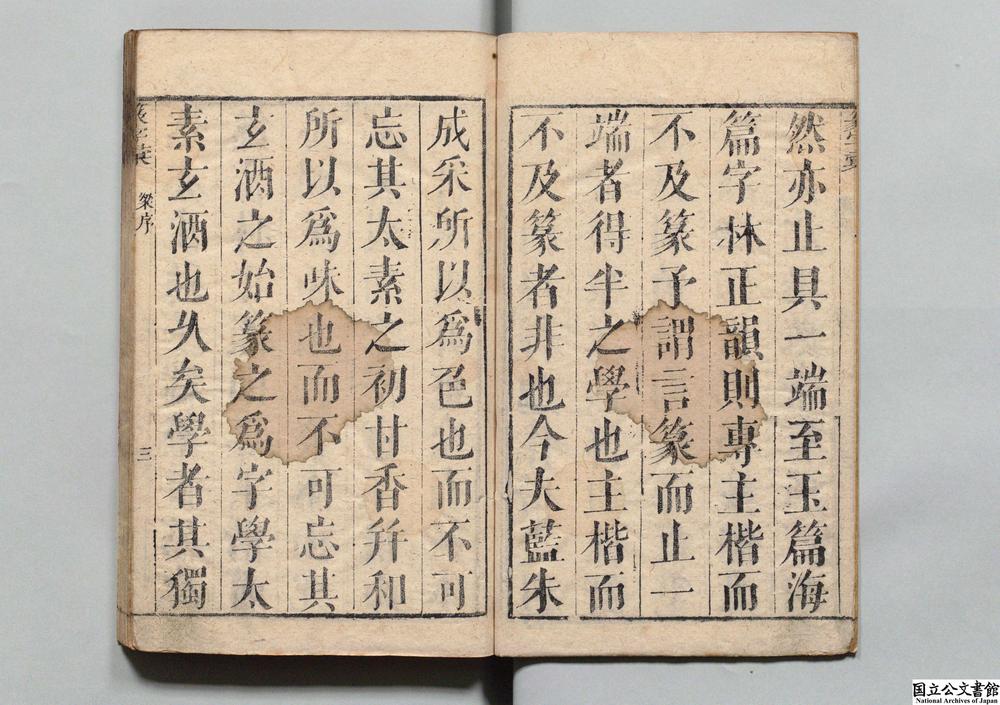 然亦止具一端至玉篇海
篇字林正韻則專主楷而
不及篆予謂言篆而止一
端者得半之學也主楷而
不及篆者非也今夫藍朱
成采所以爲色也而不可
忘其太素之初甘香幷和
所以爲味也而不可忘其
玄酒之始篆之爲字學太
素玄酒也久矣學者其獨
梁序
三
国立公文書館
National Archives of Japan